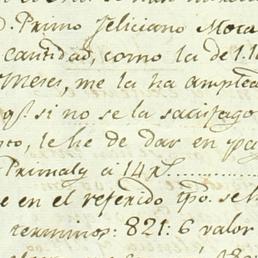 D. Primo Feliciano Mora
cantidad, como la de 1.1
meses, me la ha amplia
qe. si no se la satisfago
le he de dar en pa
Primaly a 14 r.
e en el referido tpo. se h
terminos: 821: 6 valor